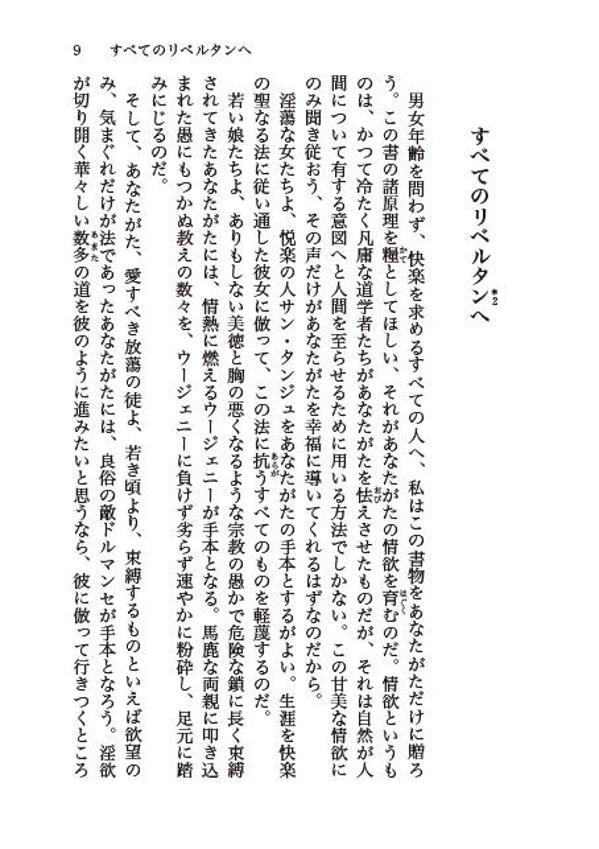 9 すべてのリベルタンへ
すべてのリベルタン*2へ
男女年齢を問わず、快楽を求めるすべての人へ、私はこの書物をあなたがただけに贈ろ
う。この書の諸原理を糧かてとしてほしい、それがあなたがたの情欲を育はぐくむのだ。情欲というも
のは、かつて冷たく凡庸な道学者たちがあなたがたを怯おびえさせたものだが、それは自然が人
間について有する意図へと人間を至らせるために用いる方法でしかない。この甘美な情欲に
のみ聞き従おう、その声だけがあなたがたを幸福に導いてくれるはずなのだから。
淫蕩な女たちよ、悦楽の人サン・タンジュをあなたがたの手本とするがよい。生涯を快楽
の聖なる法に従い通した彼女に倣って、この法に抗あらがうすべてのものを軽蔑するのだ。
若い娘たちよ、ありもしない美徳と胸の悪くなるような宗教の愚かで危険な鎖に長く束縛
されてきたあなたがたには、情熱に燃えるウージェニーが手本となる。馬鹿な両親に叩き込
まれた愚にもつかぬ教えの数々を、ウージェニーに負けず劣らず速やかに粉砕し、足元に踏
みにじるのだ。
そして、あなたがた、愛すべき放蕩の徒よ、若き頃より、束縛するものといえば欲望の
み、気まぐれだけが法であったあなたがたには、良俗の敵ドルマンセが手本となろう。淫欲
が切り開く華々しい数多あまたの道を彼のように進みたいと思うなら、彼に倣って行きつくところ